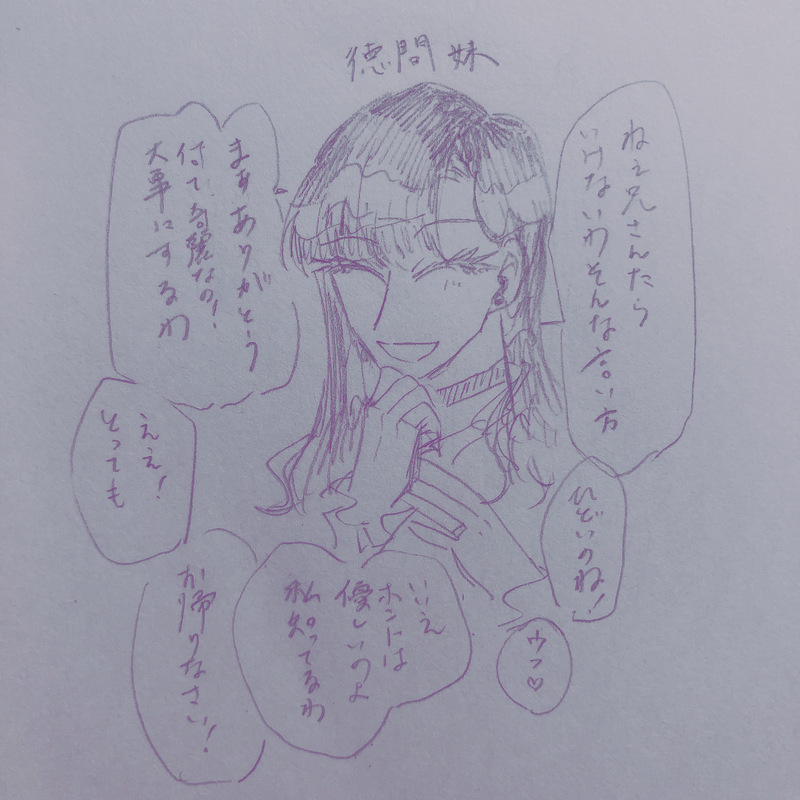 徳間妹
ねぇ兄さんたら
いけないわそんな言い方
ひどいのね!
ウフ♡
まぁありがとう
付て、奇麗なの!
大事にするわ
ええ!
とっても
いえ
ホントは
優しいのよ
私知ってるわ
お帰りなさい!